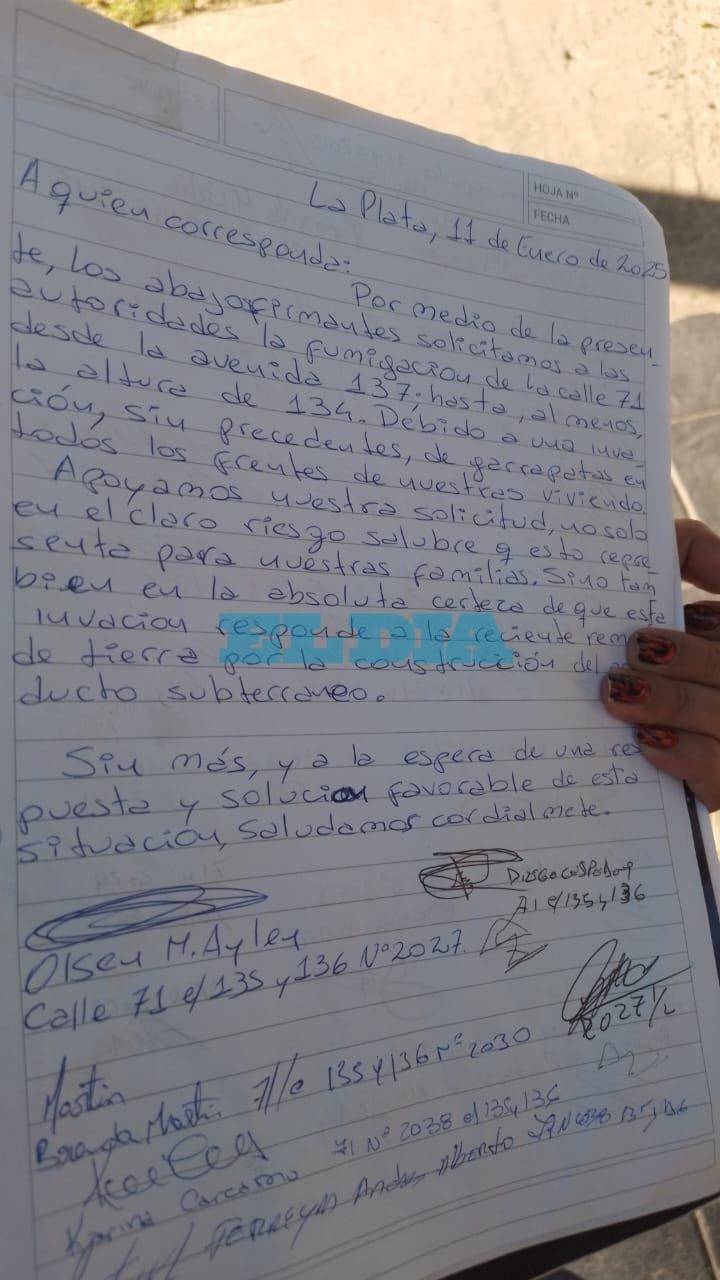 HOJA Nº
FECHA
La Plata, 11 de Enero de 2025
A quien corresponda:
Por medio de la presen-
te, los abajofirmantes solicitamos a las
autoridades la fumigacion de la calle 71
desde la avenida 137; hasta, al menos,
la altura de 134. Debido a una inva-
ción, sin precedentes, de garrapatas en
todos los frentes de nuestras vivienda
Apoyamos nuestra solicitud, no solo
en el claro riesgo salubre q esto repre
senta para nuestras familias. Sino tam
bien en la absoluta certeza de que esta
invacion responde a la reciente rem
de tierra por la construcción del
ducto subterraneo.
EL DIA
Sin más, y a la espera de una res
puesta y solucion favorable de esta
situación, saludamos cordialmete.
e/135 y 136
Olsen M. Ayley
Calle 71 e/ 135 y 136 Nº 2027.
2027 1/2
Martin
Brenda Martin 71 e 135 y 136 Nº 2030
Karina 71 Nº 2038 e/ 135 y 136
FERREYRA Alberto